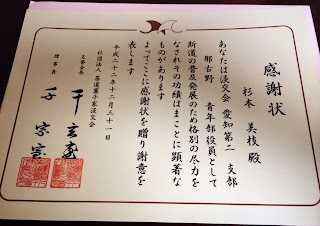 感謝状
杉本 美枝 殿
あなたは淡交会 愛知第二 支部
那古野 青年部役員として
斯道の普及発展のため格別の尽力を
なされその功績はまことに顕著な
ものがあります
よってここに感謝状を贈り謝意を
表します
平成二十二年十二月三十一日
社団法人 茶道裏千家淡交会
理事長 千 宗室